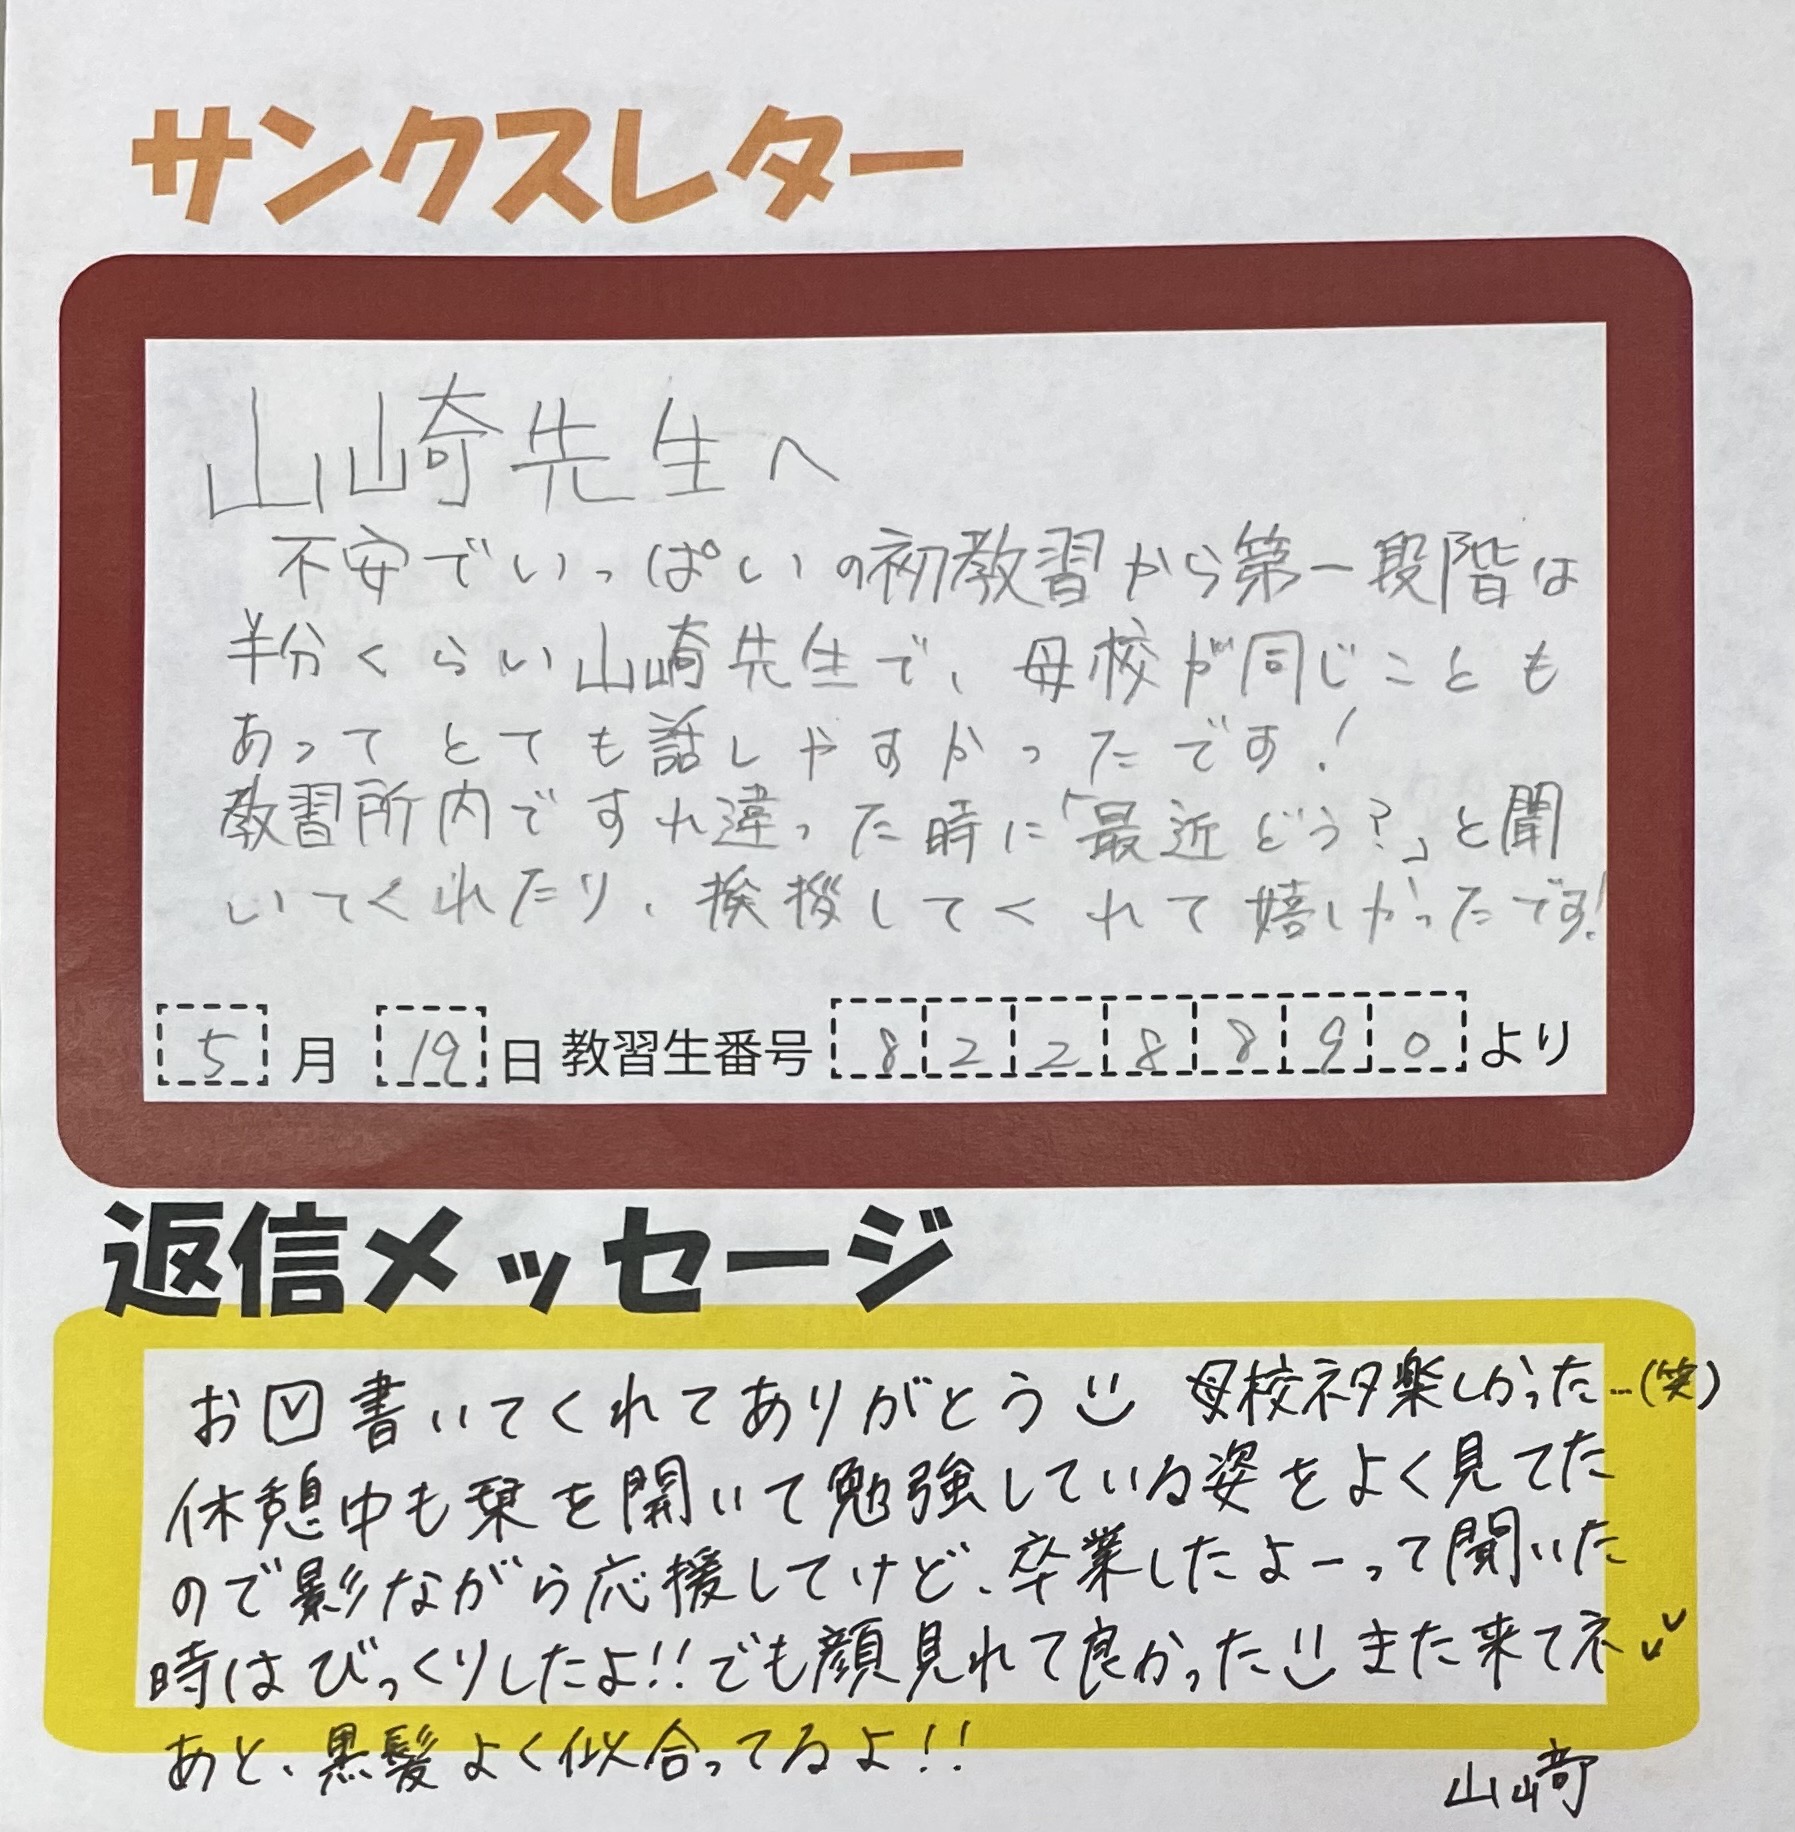 サンクスレター
山崎先生へ
不安でいっぱいの初教習から第一段階は
半分くらい山崎先生で、母校が同じことも
あってとても話しやすかったです!
教習所内ですれ違った時に「最近どう?」と聞
いてくれたり、挨拶してくれて嬉しかったです!
5月19日教習生番号8228890より
返信メッセージ
お☑書いてくれてありがとう 母校ネタ楽しかった…(笑)
休憩中も栞を開いて勉強している姿をよく見てた
ので影ながら応援してけど、卒業したよーって聞いた
時はびっくりしたよ!!でも顔見れて良かった また来てネ
あと、黒髪よく似合ってるよ!!
山﨑